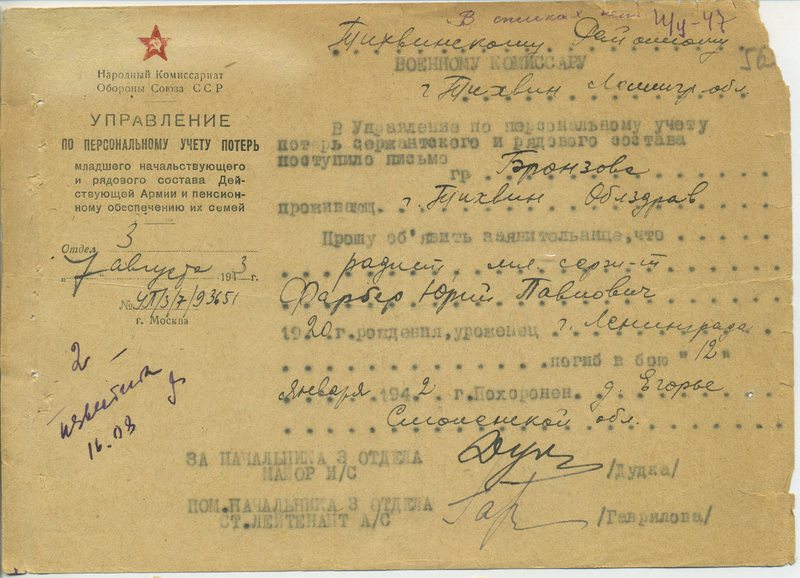 В списках нет
Ш/у-47
Народный Комиссариат
Обороны Союза ССР
УПРАВЛЕНИЕ
ПО ПЕРСОНАЛЬНОМУ УЧЕТУ ПОТЕРЬ
младшего начальствующего
и рядового состава Дей-
ствующей Армии и пенсион-
ному обеспечению их семей
Отдел 3
"7" августа 1943 г.
№ УП/3/7/93651
г. Москва
2
известить
16.03
Тихвинскому Районному
ВОЕННОМУ КОМИССАРУ
г. Тихвин Ленингр. обл
В Управление по персональному учету
потерь сержантского и рядового состава
поступило письмо
гр Бронзова
проживающ. г. Тихвин Облздрав
Прошу об'явить заявительнице, что
радист, мл. серж-т
Фарбер Юрий Павлович
1920 г. рождения, уроженец г. Ленинграда
погиб в бою "12"
января 1942 г. Похоронен д. Егорье
Смоленской обл.
ЗА НАЧАЛЬНИКА 3 ОТДЕЛА
МАЙОР И/С
/Дудка/
ПОМ. НАЧАЛЬНИКА 3 ОТДЕЛА
СТ. ЛЕЙТЕНАНТ А/С
/Гаврилова/